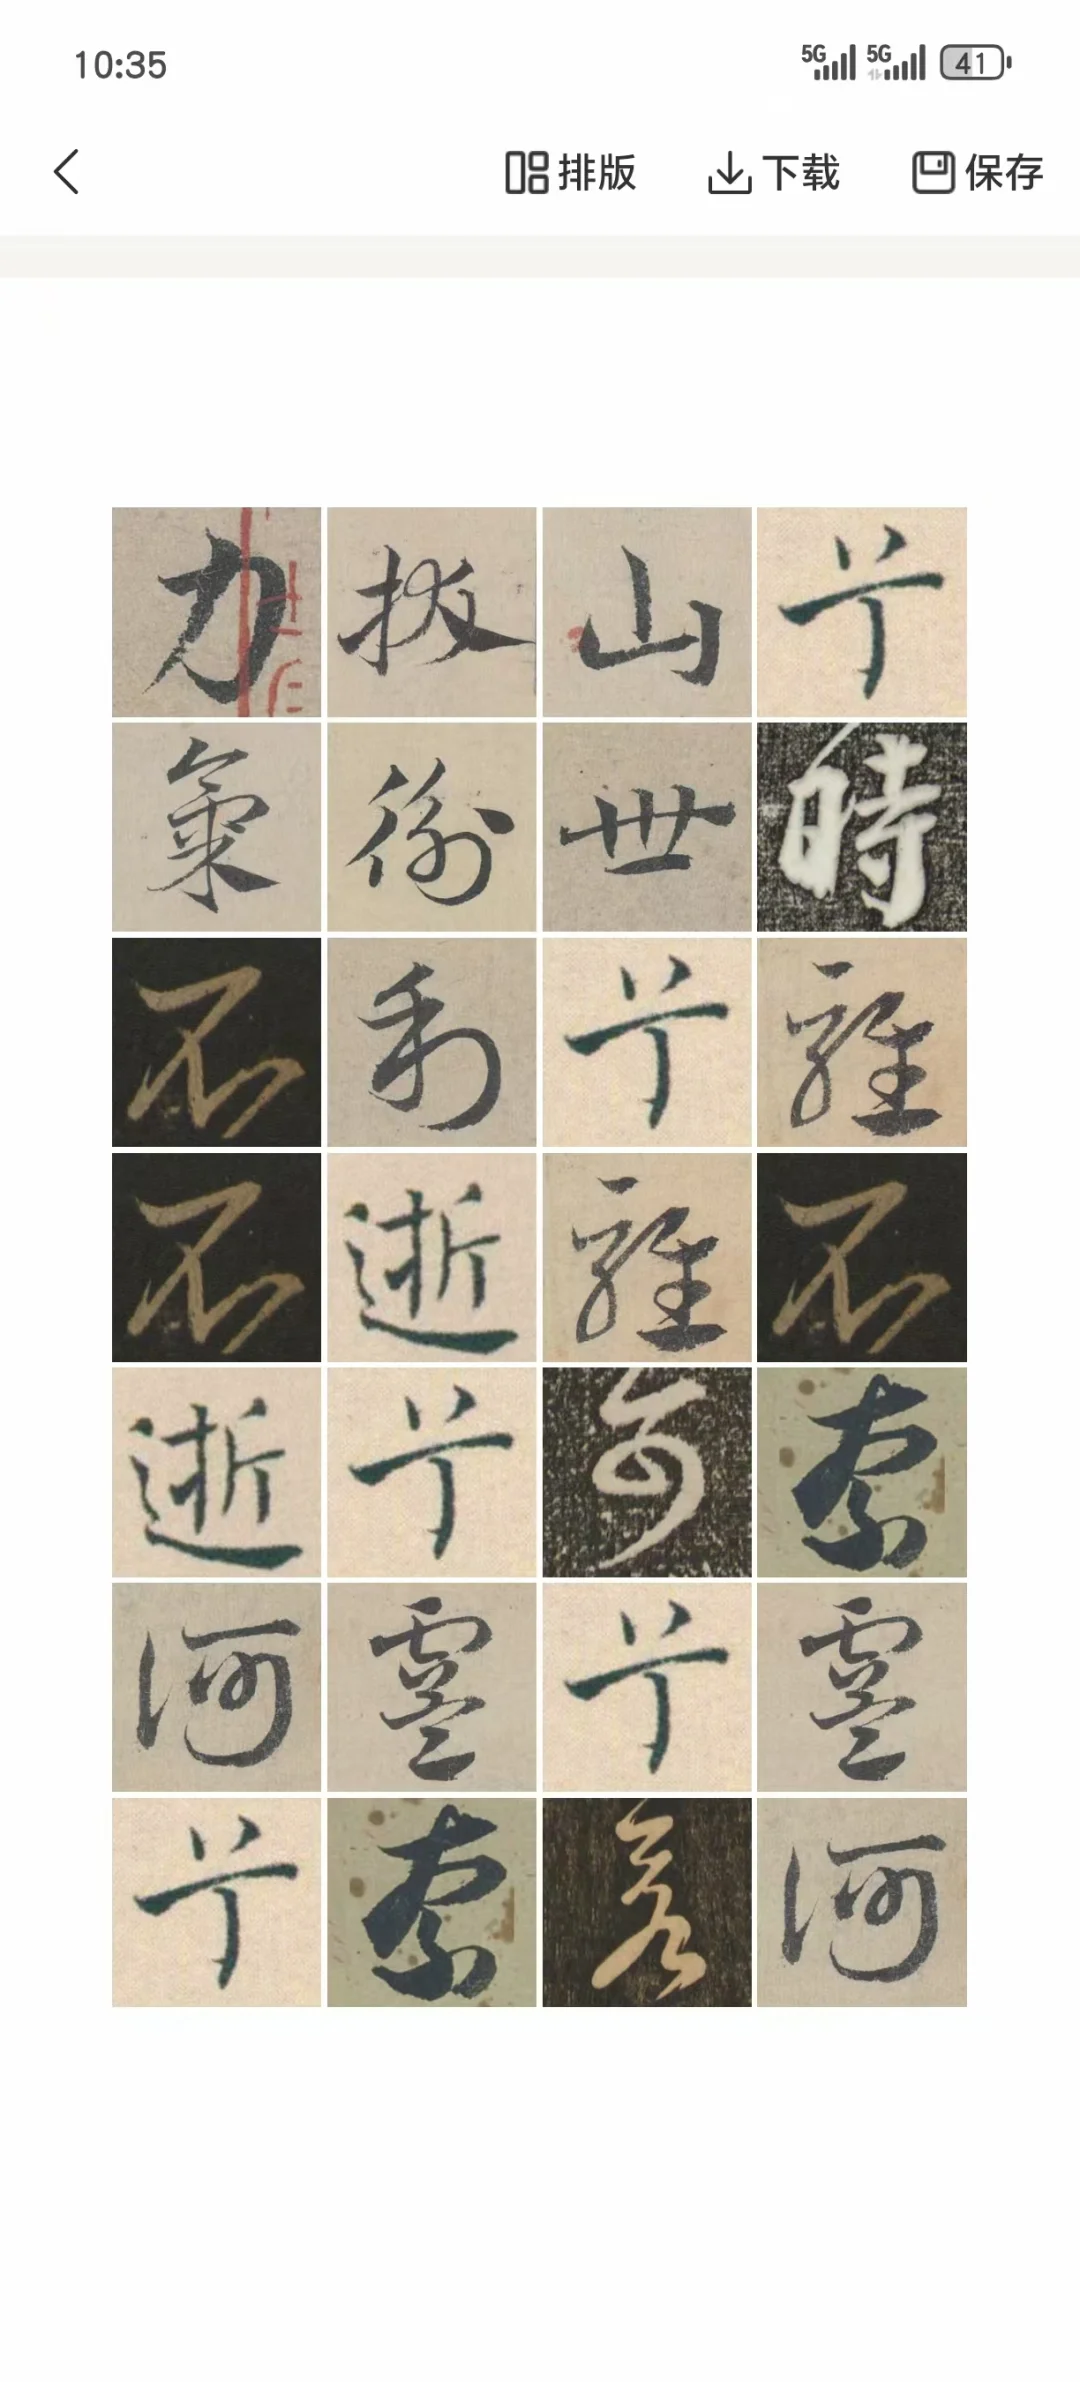 10:35 5G 5G 41
排版 下载 保存
力拔山兮
氣世時
不利兮騅
不逝騅不
逝兮可奈
何虞兮虞
兮奈若何